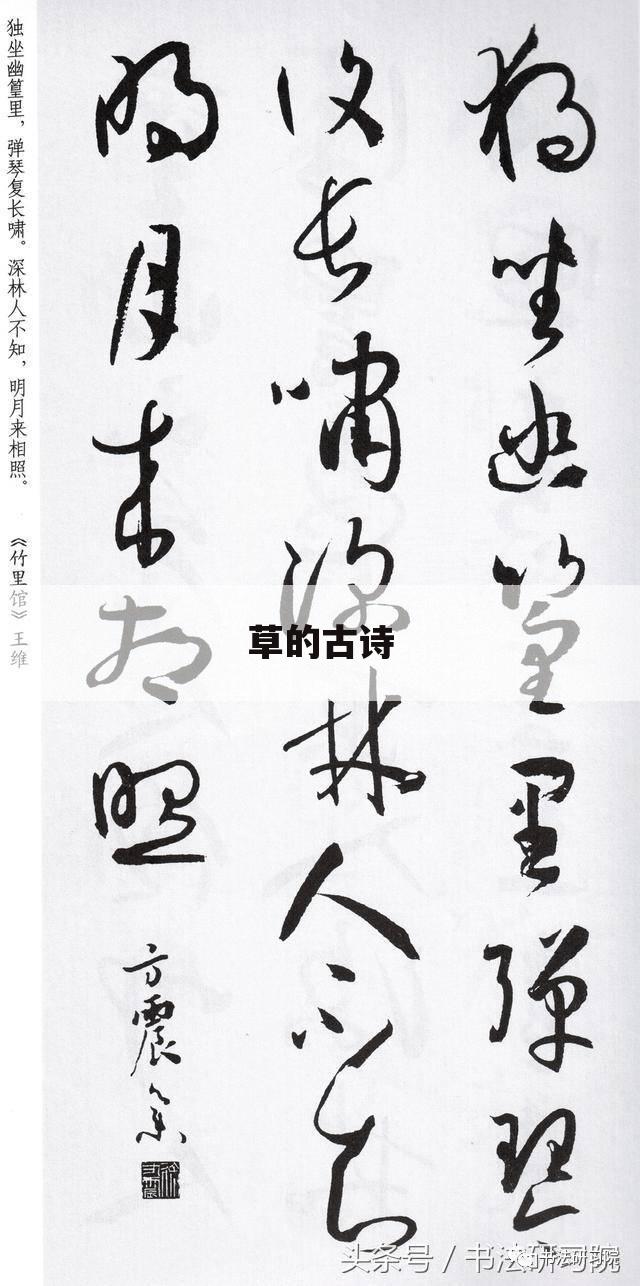 独坐幽篁里弹琴
复长啸深林人不知
明月来相照
方震
独坐幽篁里，弹琴复长啸。深林人不知，明月来相照。 《竹里馆》王维
草的古诗
头条号 / 书法研习院
书法研习院